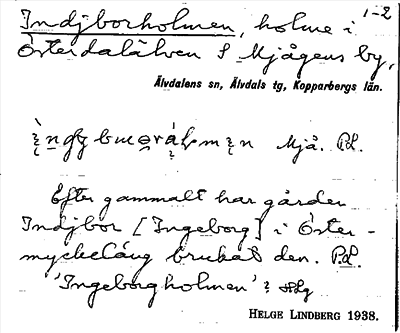 1-2
Indjborholmen, holme i
Österdalälven S Mjågens by,
Älvdalens sn, Älvdals tg, Kopparbergs län.
Mjå. P.L.
Efter gammalt har gården
Indjbor [Ingeborg] i Öster-
myckeläng brukat den. P.L.
'Ingeborgholmen'? Hlg
HELGE LINDBERG 1938.